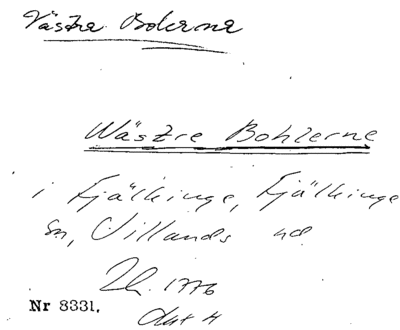 Västra Bolerna
Wästre Bohlerne
i Fjälkinge, Fjälkinge
sn, Villands hd
Lh. 1776
Akt 4
Nr 8331.